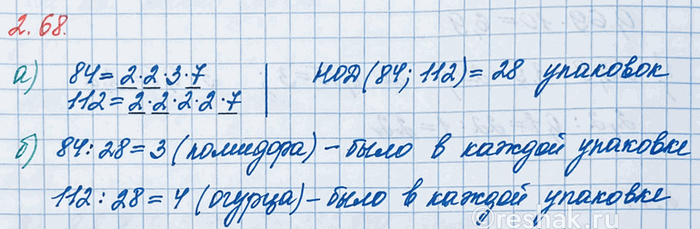 2.68.
а) 84 = 2·2·3·7 | НОД(84; 112) = 28 упаковок
112 = 2·2·2·2·7
б) 84 : 28 = 3 (помидора) – было в каждой упаковке
112 : 28 = 4 (огурца) – было в каждой упаковке
reshak.ru